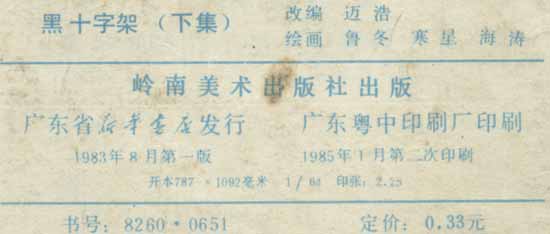 黑十字架（下集） 改编 迈浩
绘画 鲁冬 寒星 海涛
岭南美术出版社出版
广东省新华书店发行 广东粤中印刷厂印刷
1983年8月第一版 1985年1月第二次印刷
开本787×1092毫米 1/64 印张：2.25
书号：8260·0651 定价：0.33元